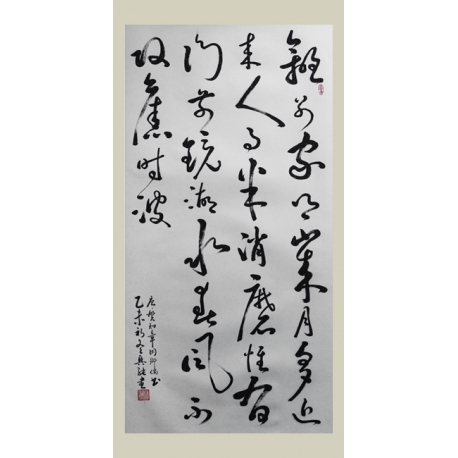 離別家鄉歲月多近
來人事半消磨惟有
門前鏡湖水春風不
改舊時波
唐賀知章回鄉偶書
乙未初冬書